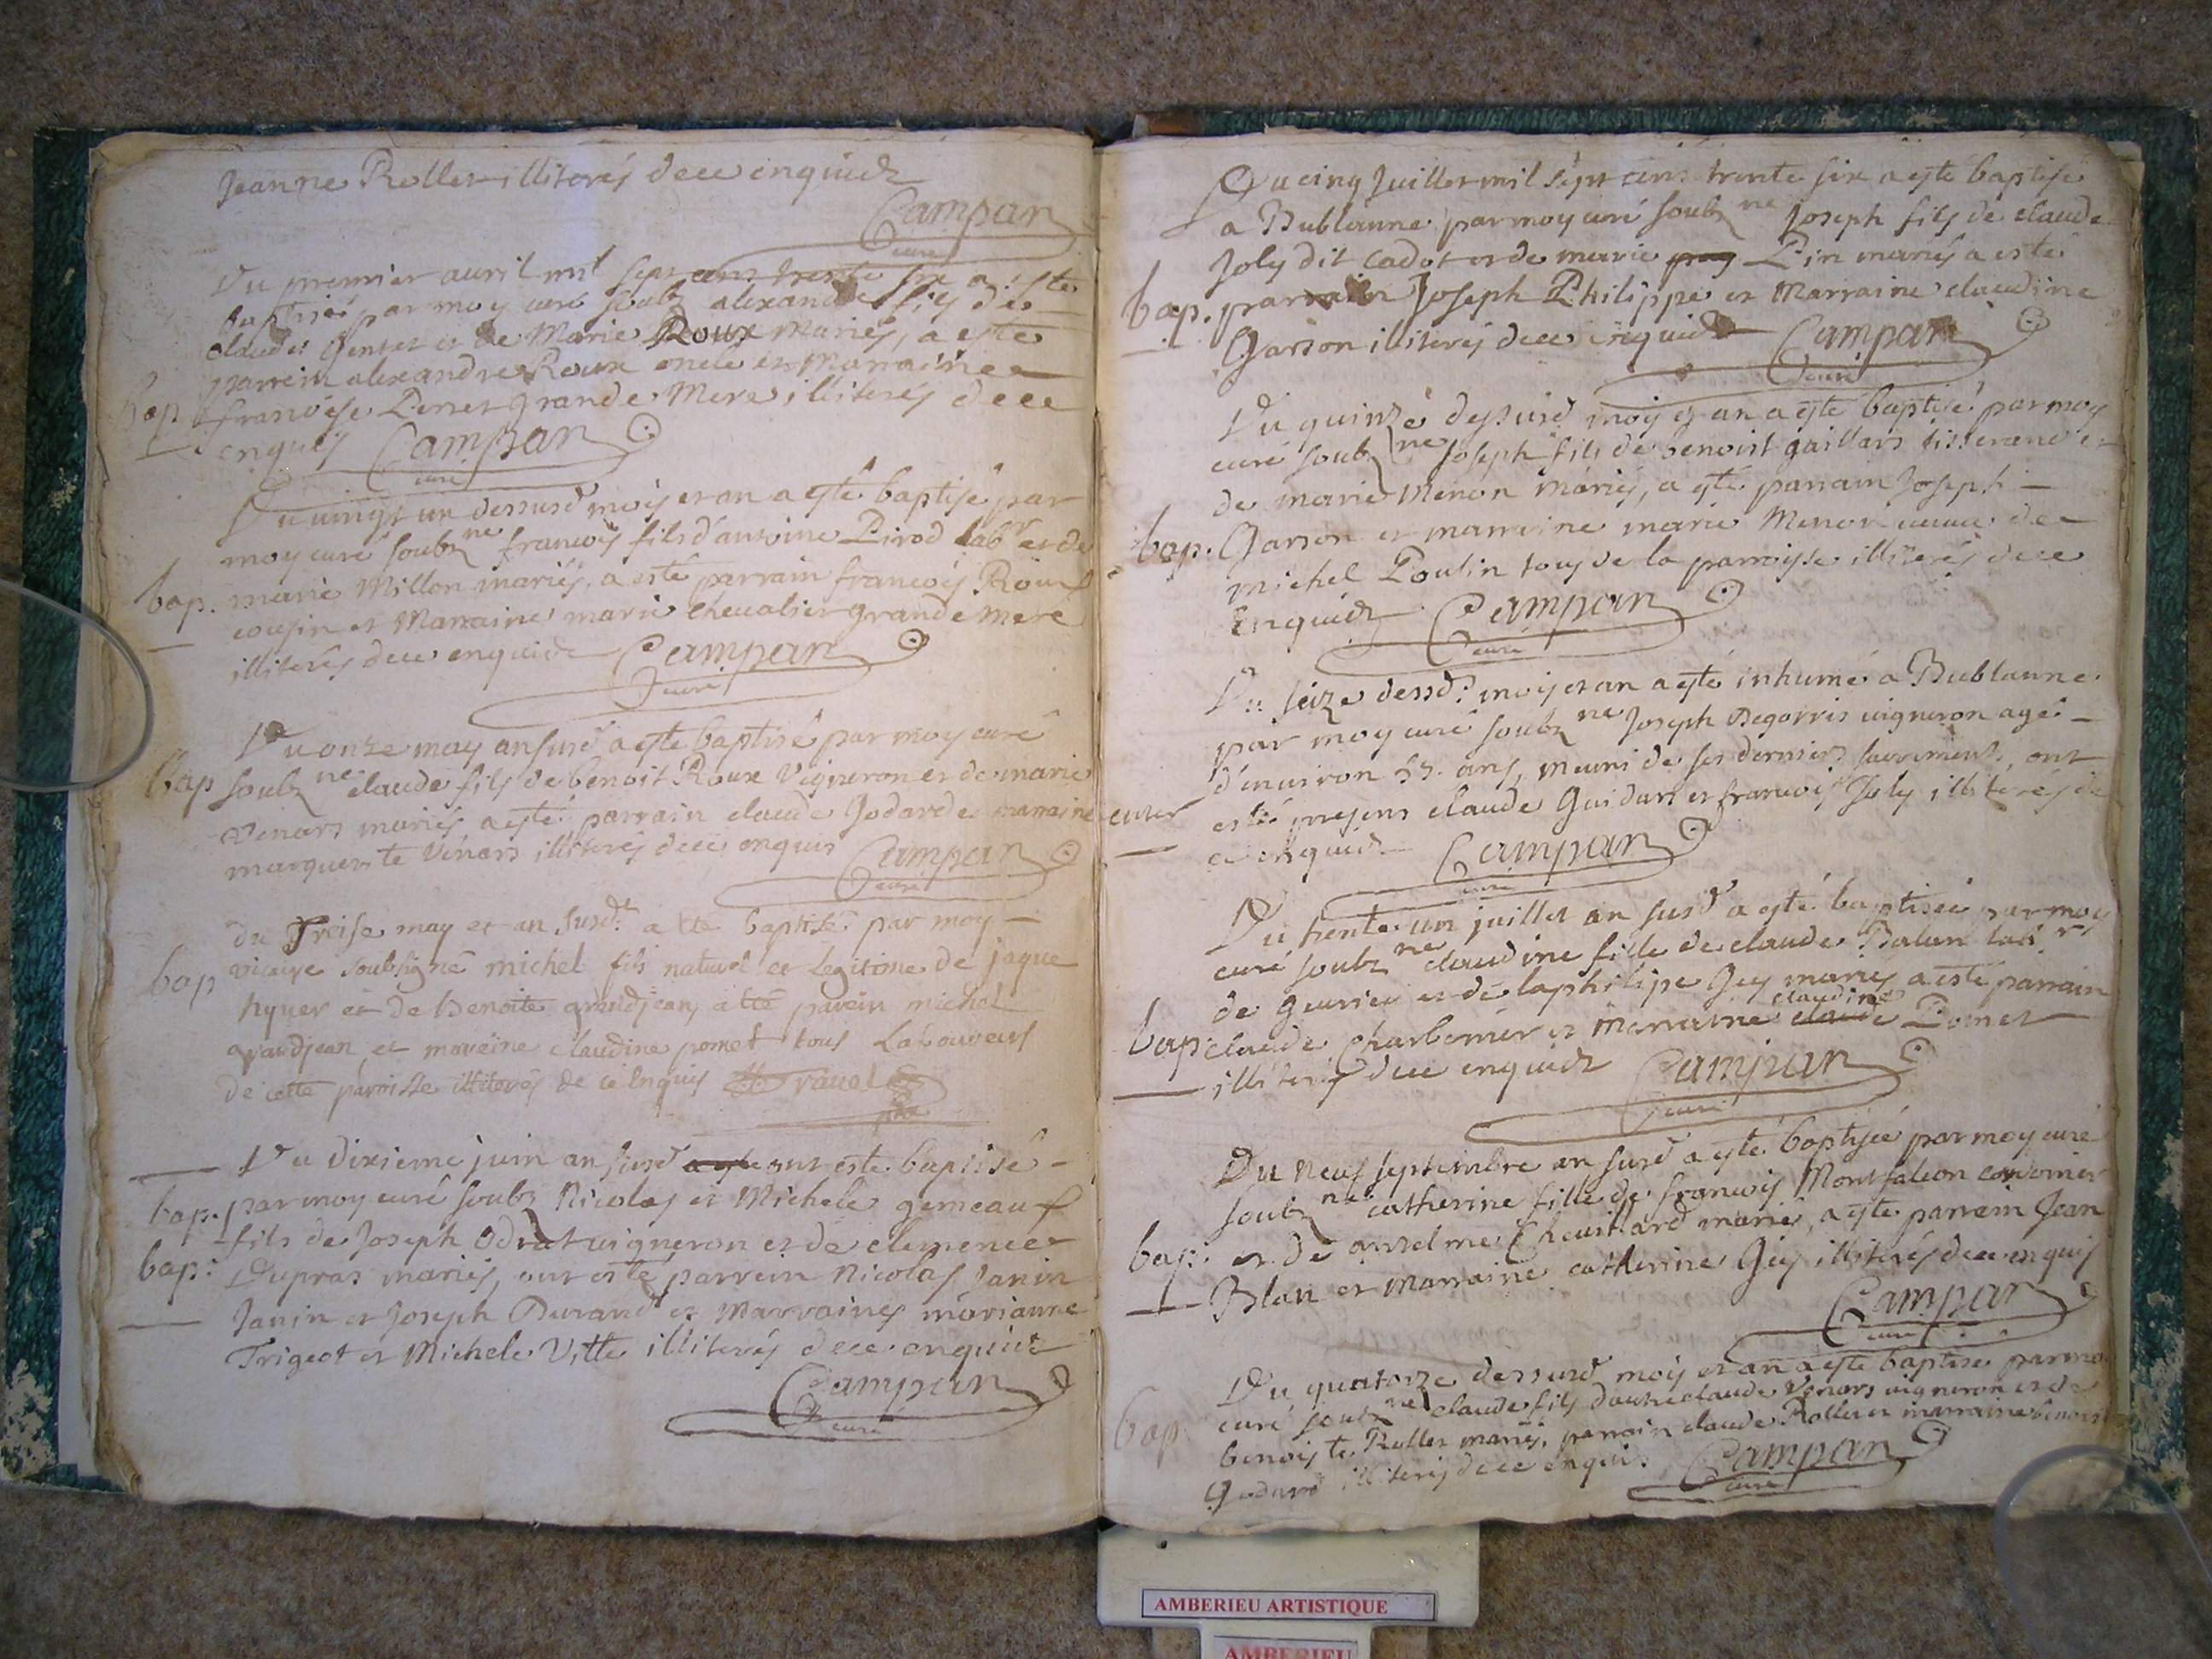 Jeanne Rollet illiterés dece enquids
Campan
curé
Du premier auril mil sept cens trente six a esté
baptisé par moy curé soubz alexandre fils de
claude Genset et de Marie Roux mariés, a esté
parrein alexandre Roux oncle et Marraine
bap francoise Penet grande Mere illiterés dece
enquis Campan
curé
Du uingt un dessusd mois et an a esté baptisé par
moy curé soubz ne francois fils d'antoine Pirod labr et de
bap. marie Millon mariés, a esté parrain francois Roux
cousin et Marraine marie cheualier grande mere
illiterés dece enquids Campan
curé
Du onze may an susd a esté baptisé par moy curé
bap soubz ne claude fils de benoit Roux Vigneron et de marie
Venars mariés a esté parrain claude Godard e marraine
marguerite Venars illiterés dece enquis Campan
curé
du Treise may et an susd. a eté baptisé par moy
bap vicaire soubsigné michel fils naturel et legitime de jaque
hyuer et de benoite grandjean, a eté parein michel
grandjean et mareine claudine pomet tous Laboureurs
de cette paroisse illiterés de ce enquis ravel
Du dixieme juin an susd a esté ont esté baptisé
bap. par moy curé soubz Nicolas et Michele gemeaux
fils de Joseph Odrat uigneron et de clemence
bap: Dupras mariés, ont esté parrein Nicolas Janin
Janin et Joseph Durand et Marraines marianne
Trigeot et Michele Vitte illiterés dece enquids
Campan
curé
Du cinq Juillet mil sept cens trente six a esté baptisé
a Bublanne par moy curé soubz ne Joseph fils de claude
Joly dit cadot et de marie Pin mariés a esté
bap. parrain Joseph Philippe et Marraine claudine
Garson illiterés dece enquids Campan
curé
Du quinze dessusd mois et an a esté baptisé par moy
curé soubz ne Joseph fils de benoist gaillars tisserand et
de marie Menon mariés, a esté parrain Joseph
bap. Garson et marraine marie Menon ueuue de
michel Poulin tous de la parroisse illiterés dece
Enquids Campan
curé
Du seize dessd. mois et an a esté inhumé a Bublanne
par moy curé soubz ne Joseph Degorris uigneron agé
d'enuiron 55 ans, muni de ses derniers sacremens, ont
enter esté presens claude Guidars et francois Joly illiterés de
ce enquids Campan
curé
Du trente un juillet an susd a esté baptisée par moy
curé soubz ne claudine fille de claude Balan labr
de Geurieu et de laphilipe Gey mariés a esté parrain
claudine
bap: claude Charbonier et Marraine claude Pomet
illiterés dece enquids Campan
curé
Du neuf septembre an susd a esté baptisée par moy curé
soubz né catherine fille de francois Montfalcon cordonier
bap: et de anselme Cheuillard mariés, a esté parrein Jean
Blan et marraine catherine Gey illiterés dece enquis
Campan
curé
Du quatorze dessusd mois et an a esté baptisé par mo
bap. curé soubz né claude fils d'autre claude Venars uigneron et de
benoiste Rollet mariés, parrain claude Rollet et marraine benoiste
Godard illiterés dece enquis Campan
curé
AMBERIEU ARTISTIQUE
AMBERIEU